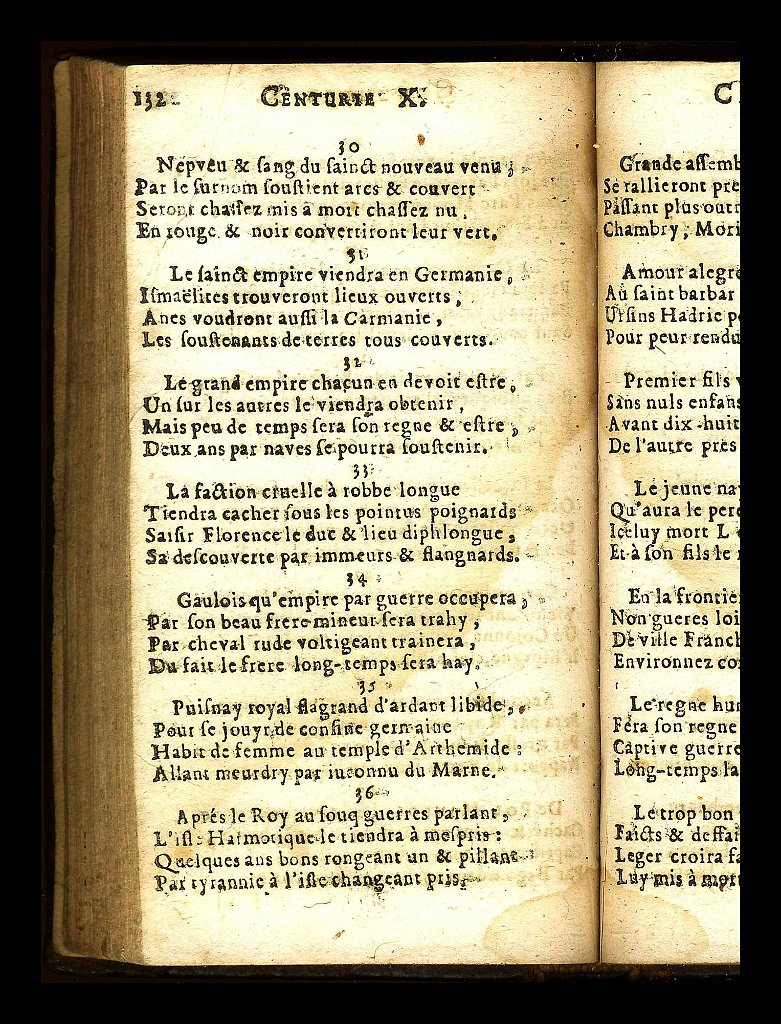 132 CENTURIE X.
30
Nepveu & sang du sainct nouveau venu ;
Par le surnom soustient arcs & couvert
Seront chassez mis à mort chassez nu ,
En rouge & noir convertiront leur vert.
31
Le sainct empire viendra en Germanie ,
Ismaëlites trouveront lieux ouverts ,
Anes voudront aussi la Carmanie ,
Les soustenants de terres tous couverts.
32
Le grand empire chacun en devoit estre ,
Un sur les autres le viendra obtenir ,
Mais peu de temps sera son regne & estre ,
Deux ans par naves se pourra soustenir.
33
La faction cruelle à robbe longue
Tiendra cacher sous les pointus poignards
Saisir Florence le duc & lieu diphlongue ,
Sa descouverte par immeurs & flangnards.
34
Gaulois qu'empire par guerre occupera ,
Par son beau frere mineur sera trahy ,
Par cheval rude voltigeant trainera ,
Du fait le frere long-temps sera hay.
35
Puisnay royal flagrand d'ardant libide ,
Pour se jouyr de consine germaine
Habit de femme au temple d'Arthemide :
Allant meurdry par inconnu du Marne.
36
Aprés le Roy au souq guerres parlant ,
L'isle Harmotique le tiendra à mespris :
Quelques ans bons rongeant un & pillant
Par tyrannie à l'isle changeant pris.
C
Grande assemb
Se rallieront pre
Passant plus outr
Chambry , Mori
Amour alegre
Au saint barbar
Ursins Hadrie p
Pour peur rendu
Premier fils v
Sans nuls enfans
Avant dix-huit
De l'autre pres
Le jeune na
Qu'aura le pere
Iceluy mort L
Et à son fils le
En la frontie
Non gueres loi
De ville Franch
Environnez co
Le regne hu
Fera son regne
Captive guerre
Long-temps la
Le trop bon
Faicts & deffai
Leger croira fa
Luy mis à mort